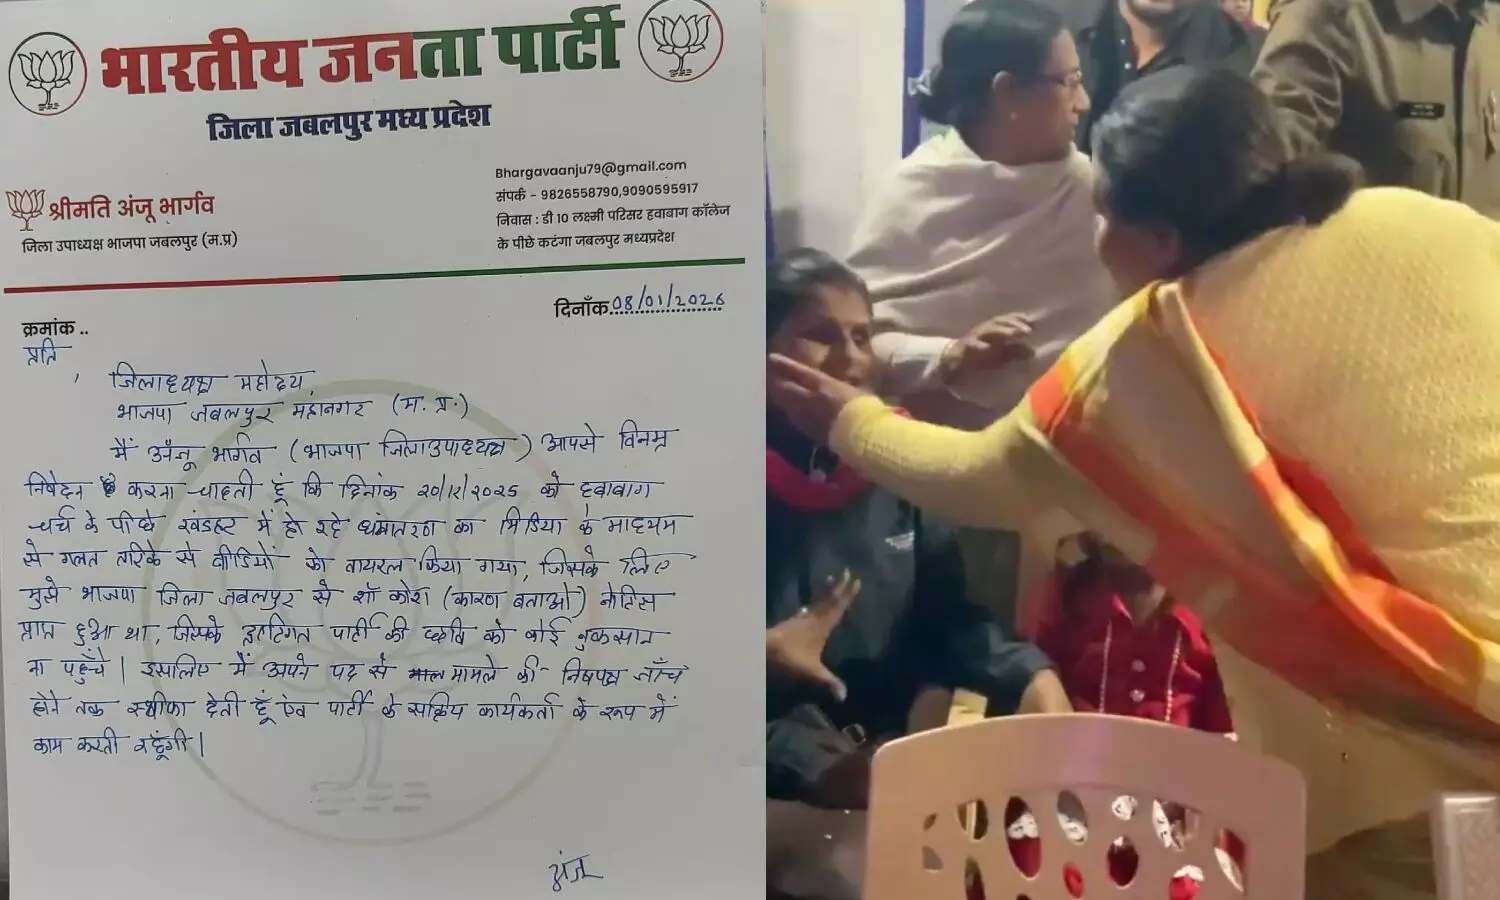 भारतीय जनता पार्टी
जिला जबलपुर मध्य प्रदेश
Bhargavaanju79@gmail.com
संपर्क - 9826558790,9090595917
निवास : डी 10 लक्ष्मी परिसर हवाबाग कॉलेज
के पीछे कटंगा जबलपुर मध्यप्रदेश
श्रीमति अंजू भार्गव
जिला उपाध्यक्ष भाजपा जबलपुर (म.प्र)
दिनाँक 08/01/2026
क्रमांक ..
प्रति,
जिलाध्यक्ष महोदय,
भाजपा जबलपुर महानगर (म. प्र.)
मैं अँजू भार्गव (भाजपा जिलाउपाध्यक्ष) आपसे विनम्र
निवेदन करना चाहती हूँ कि दिनांक 20/12/2025 को हवाबाग
चर्च के पीछे खंडहर में हो रहे धर्मातरण का मिडिया के माध्यम
से गलत तरिके से वीडियों को वायरल किया गया, जिसके लिए
मुझे भाजपा जिला जबलपुर से शॉ कोश (कारण बताओ) नोटिस
प्राप्त हुआ था, जिसके पार्टी की छवि को कोई नुकसान
ना पहुँचे। इसलिए मैं अपने पद से मामले की निष्पक्ष जाँच
होने तक स्थीफा देती हूँ एंव पार्टी के सक्रिय कार्यकर्ता के रूप में
काम करती रहूंगी।
अंजू